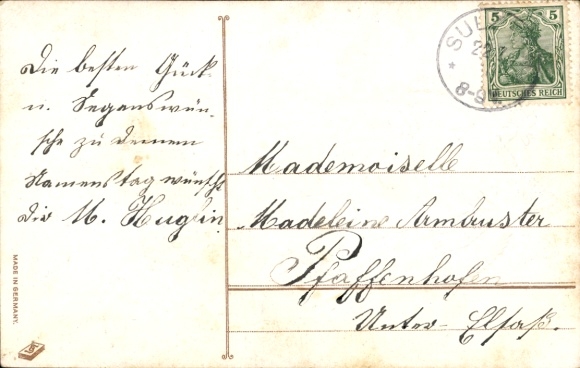 Die besten Glück-
u. Segenswün-
sche zu Deinem
Namenstag wünscht
Dir M. Huglin
MADE IN GERMANY.
5 5
DEUTSCHES REICH
8-9
Mademoiselle
Madeleine Armbruster
Pfaffenhofen
Unter-Elsaß.